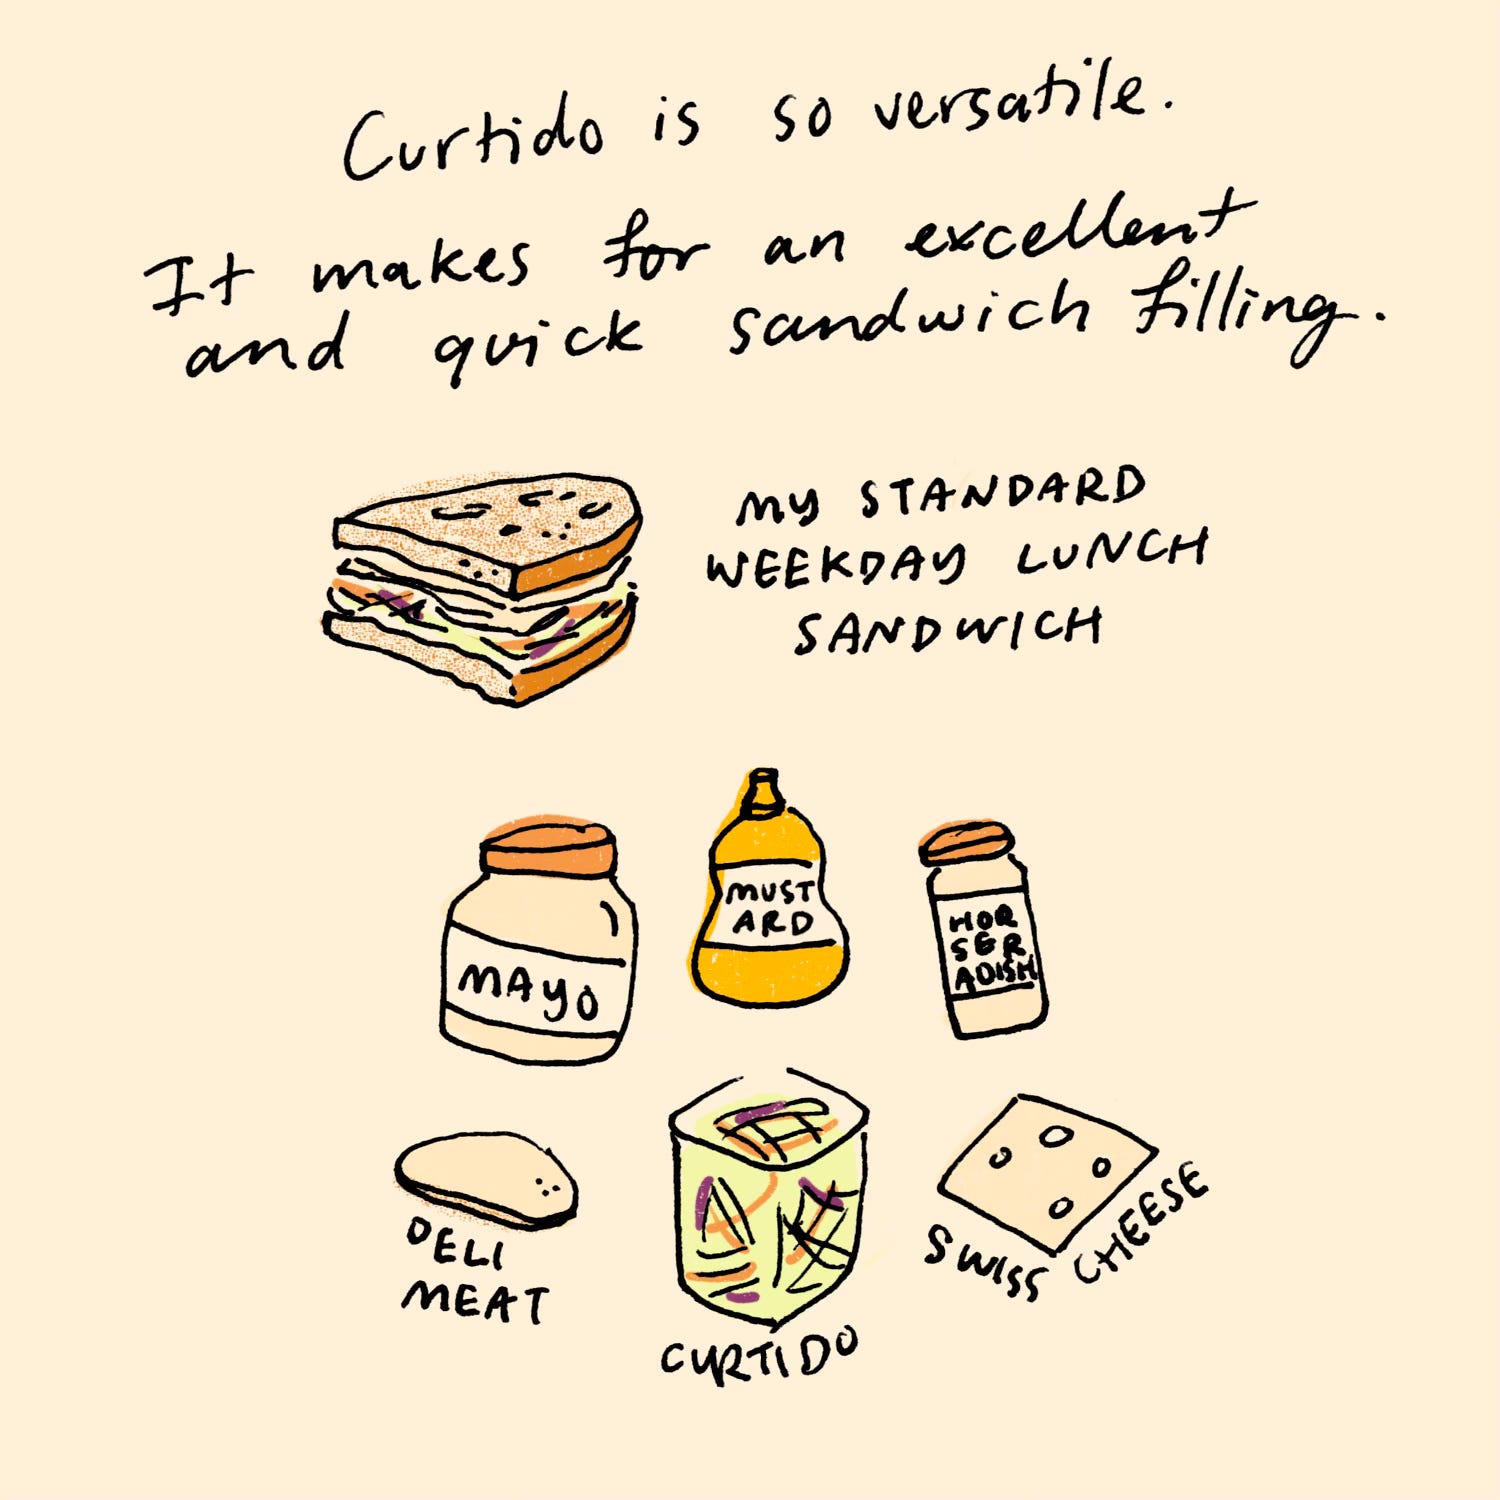 Curtido is so versatile.
It makes for an excellent
and quick sandwich filling.
MY STANDARD
WEEKDAY LUNCH
SANDWICH
MAYO
MUST
ARD
HOR
SER
ADISH
DELI
MEAT
CURTIDO
SWISS CHEESE